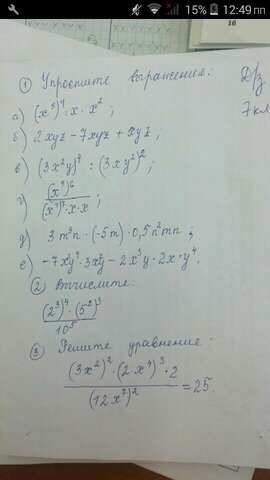 15% 12:49 пп
16
① Упростите выражения: Д/з
7 кл
а) (x⁵)⁴ · x · x²;
б) 2xyz − 7xyz + xyz;
в) (3x²y)⁴ : (3xy²)²;
г) (x⁹)⁶ / (x⁴)⁷ · x · x;
д) 3m²n · (−5m) · 0,5n²mn;
② Вычислите:
(2³)⁴ · (5²)³ / 10⁵
③ Решите уравнение:
(3x²)² · (2x⁴)³ · 2 / (12x³)² = 25